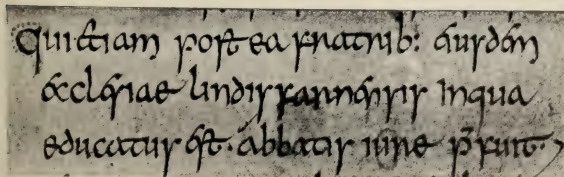 Quietiam post ea fratrib: eiusdem
ecclesiae lindisfarnensis inqua
educatus est. abbatis iure p̄fuit.,